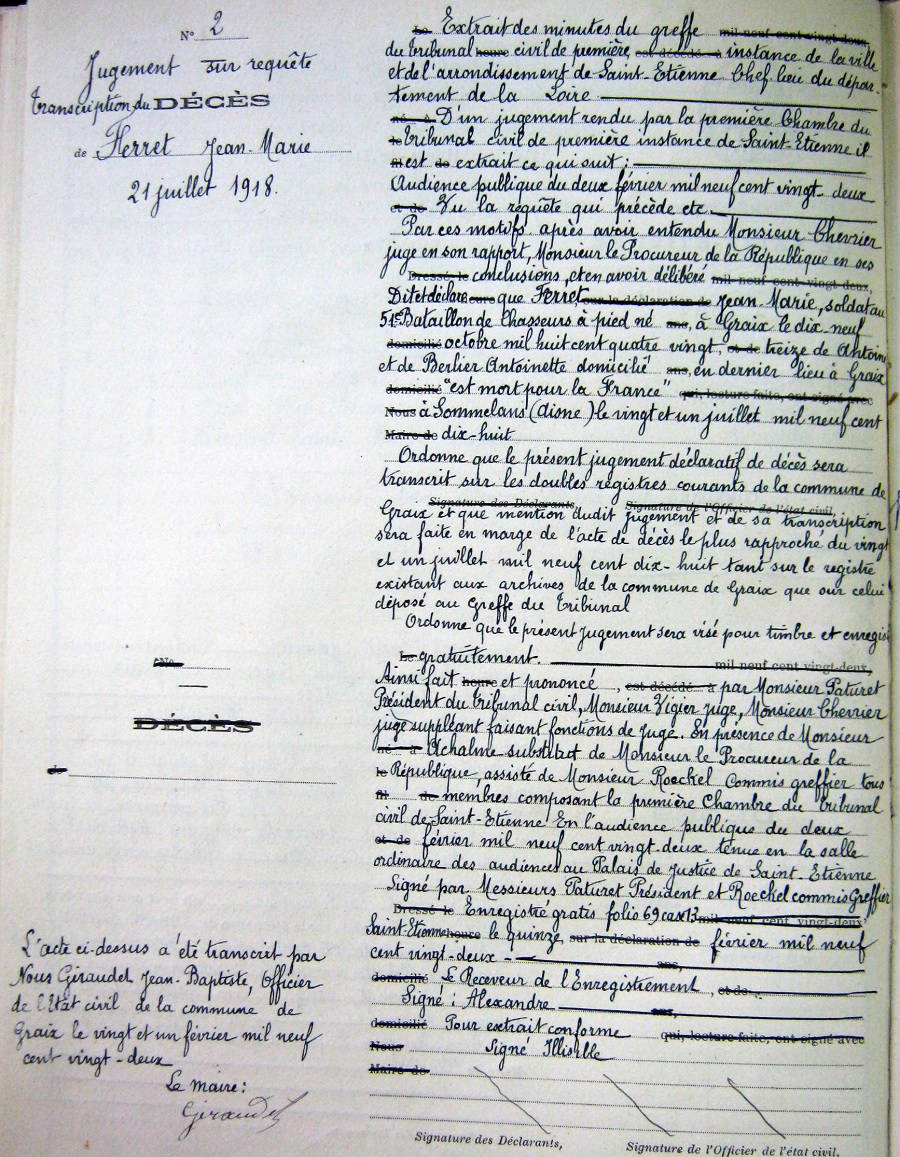 N° 2
Jugement sur requête
Transcription du DÉCÈS
de Ferret Jean-Marie
21 juillet 1918.
Le Extrait des minutes du greffe mil neuf cent vingt-deux
du tribunal heure civil de première est décédé à instance de la ville
et de l'arrondissement de Saint-Etienne Chef lieu du dépar-
tement de la Loire
né à D'un jugement rendu par la première Chambre du
le tribunal civil de première instance de Saint-Etienne il
fil est de extrait ce qui suit :
Audience publique du deux février mil neuf cent vingt-deux
et de Vu la requête qui précède etc
Par ces motifs après avoir entendu Monsieur Chevrier
juge en son rapport, Monsieur le Procureur de la République en ses
Dressé le conclusions, et en avoir délibéré mil neuf cent vingt-deux,
Dit et déclare heure que Ferret sur la déclaration de Jean-Marie, soldat au
51e Bataillon de Chasseurs à pied né ans, à Graix le dix neuf
domicilié octobre mil huit cent quatre vingt, et de treize de Antoine
et de Berlier Antoinette domicilié ans, en dernier lieu à Graix
domicilié "est mort pour la France" qui, lecture faite, ont signé avec
Nous à Sommelans (Aisne) le vingt et un juillet mil neuf cent
Maire de dix-huit
Ordonne que le présent jugement déclaratif de décès sera
transcrit sur les doubles registres courants de la commune de
Signature des Déclarants Signature de l'Officier de l'état civil,
Graix et que mention dudit jugement et de sa transcription
sera faite en marge de l'acte de décès le plus rapproché du vingt
et un juillet mil neuf cent dix-huit tant sur le registre
existant aux archives de la commune de Graix que sur celui
déposé au Greffe du Tribunal
Ordonne que le présent Jugement sera visé pour timbre et enregis
N°
DÉCÈS
de
Le gratuitement. mil neuf cent vingt-deux,
Ainsi fait heure et prononcé, est décédé à par Monsieur Paturet
Président du tribunal civil, Monsieur Vigier juge, Monsieur Chevrier
juge suppléant faisant fonctions de Juge. En présence de Monsieur
né à Achalme substitut de Monsieur le Procureur de la
le République, assisté de Monsieur Roeckel Commis greffier tous
fil de membres composant la première Chambre du tribunal
civil de Saint-Etienne En l'audience publique du deux
et de février mil neuf cent vingt-deux tenue en la salle
ordinaire des audiences au Palais de Justice de Saint-Etienne
Signé par Messieurs Paturet Président et Roeckel commis Greffier
Dressé le Enregistré gratis folio 69 case 13 mil neuf cent vingt-deux
Saint-Etienne heure le quinze, sur la déclaration de février mil neuf
cent vingt-deux - ans,
domicilié Le Receveur de l'Enregistrement, et de
Signé : Alexandre ans,
domicilié Pour extrait conforme qui, lecture faite, ont signé avec
Nous Signé Illisible
Maire de
L'acte ci-dessus a été transcrit par
Nous Giraudet Jean-Baptiste, Officier
de l'Etat civil de la commune de
Graix le vingt et un février mil neuf
cent vingt-deux
Le maire :
Giraudet
Signature des Déclarants, Signature de l'Officier de l'état civil,